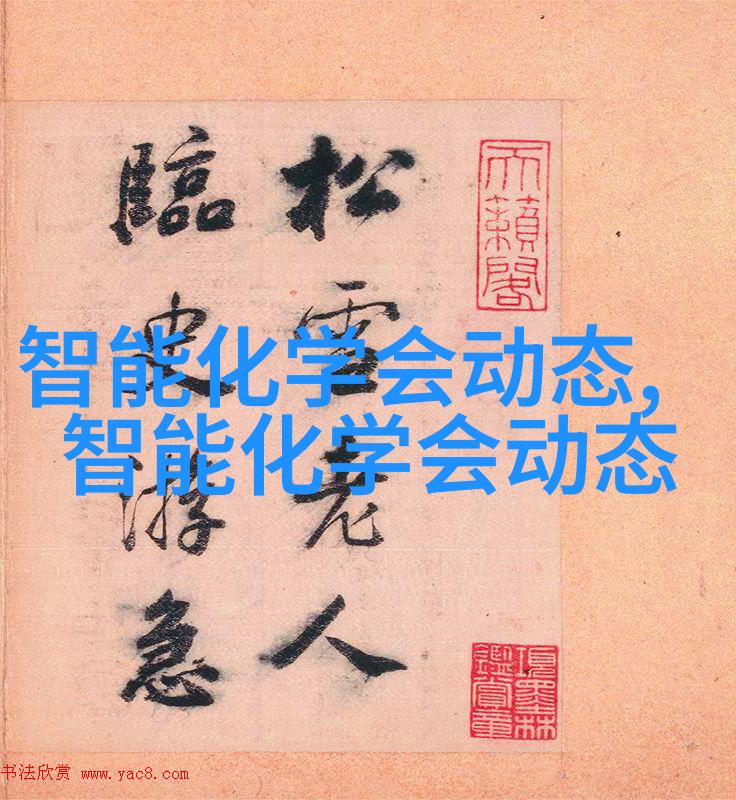 松雪老人
臨史游急
天籟閣
項墨林
鑑賞章
智能化学会动态,
智能化学会动态
书法欣赏 www.yac8.com